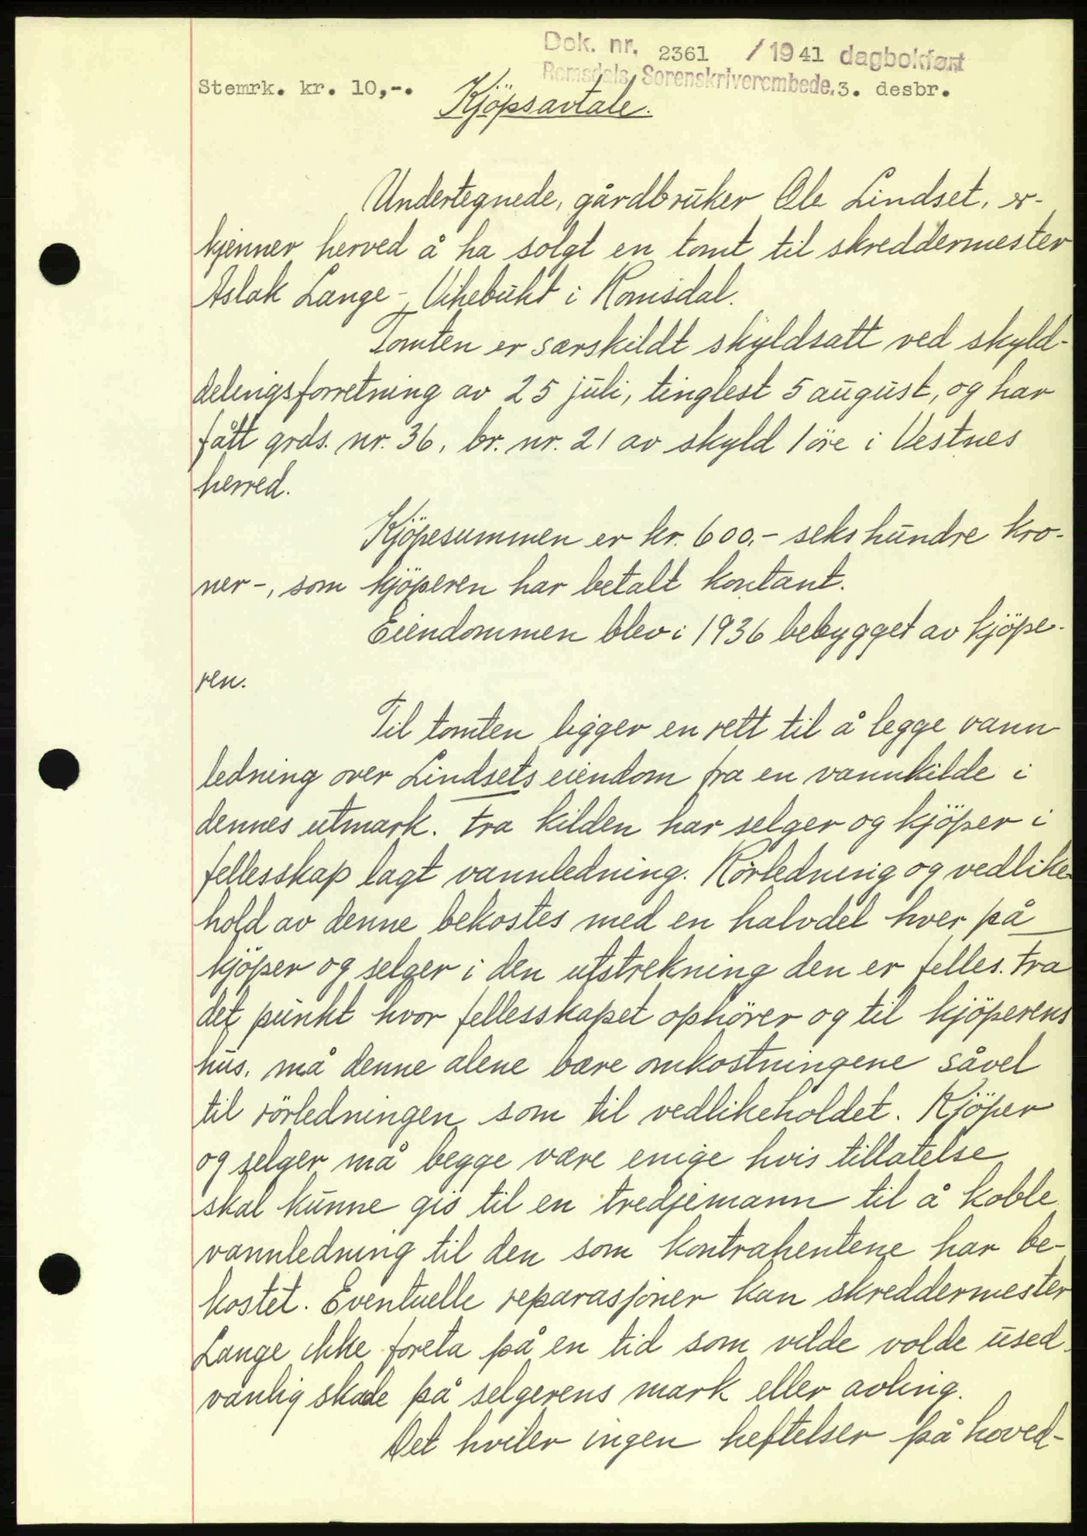 Dok. nr. 2361 / 1941 dagbokført
Romsdals Sorenskriverembede. 3. desbr.
Stemrk. kr. 10,-.
Kjöpsavtale.
Undertegnede, gårdbruker Ole Lindset, er-
kjenner herved å ha solgt en tomt til skreddermester
Aslak Lange - Vikebukt i Romsdal.
Tomten er særskildt skyldsatt ved skyld-
delingsforretning av 25 juli, tinglest 5 august, og har
fått grds. nr. 36, br. nr. 21 av skyld 1 öre i Vestnes
herred.
Kjöpesummen er kr. 600,- seks hundre kro-
ner-, som kjöperen har betalt kontant.
Eiendommen blev i 1936 bebygget av kjöpe-
ren.
Til tomten ligger en rett til å legge vann
ledning over Lindsets eiendom fra en vannkilde i
dennes utmark. Fra kilden har selger og kjöper i
fellesskap lagt vannledning. Rörledning og vedlike-
hold av denne bekostes med en halvdel hver på
kjöper og selger i den utstrekning den er felles. Fra
det punkt hvor fellesskapet ophörer og til kjöperens
hus, må denne alene bære omkostningene såvel
til rörledningen som til vedlikeholdet. Kjöper
og selger må begge være enige hvis tillatelse
skal kunne gis til en tredjemann til å koble
vannledning til den som kontrahentene har be-
kostet. Eventuelle reparasjoner kan skreddermester
Lange ikke foreta på en tid som vilde volde used-
vanlig skade på selgerens mark eller avling.
Det hviler ingen heftelser på hoved-